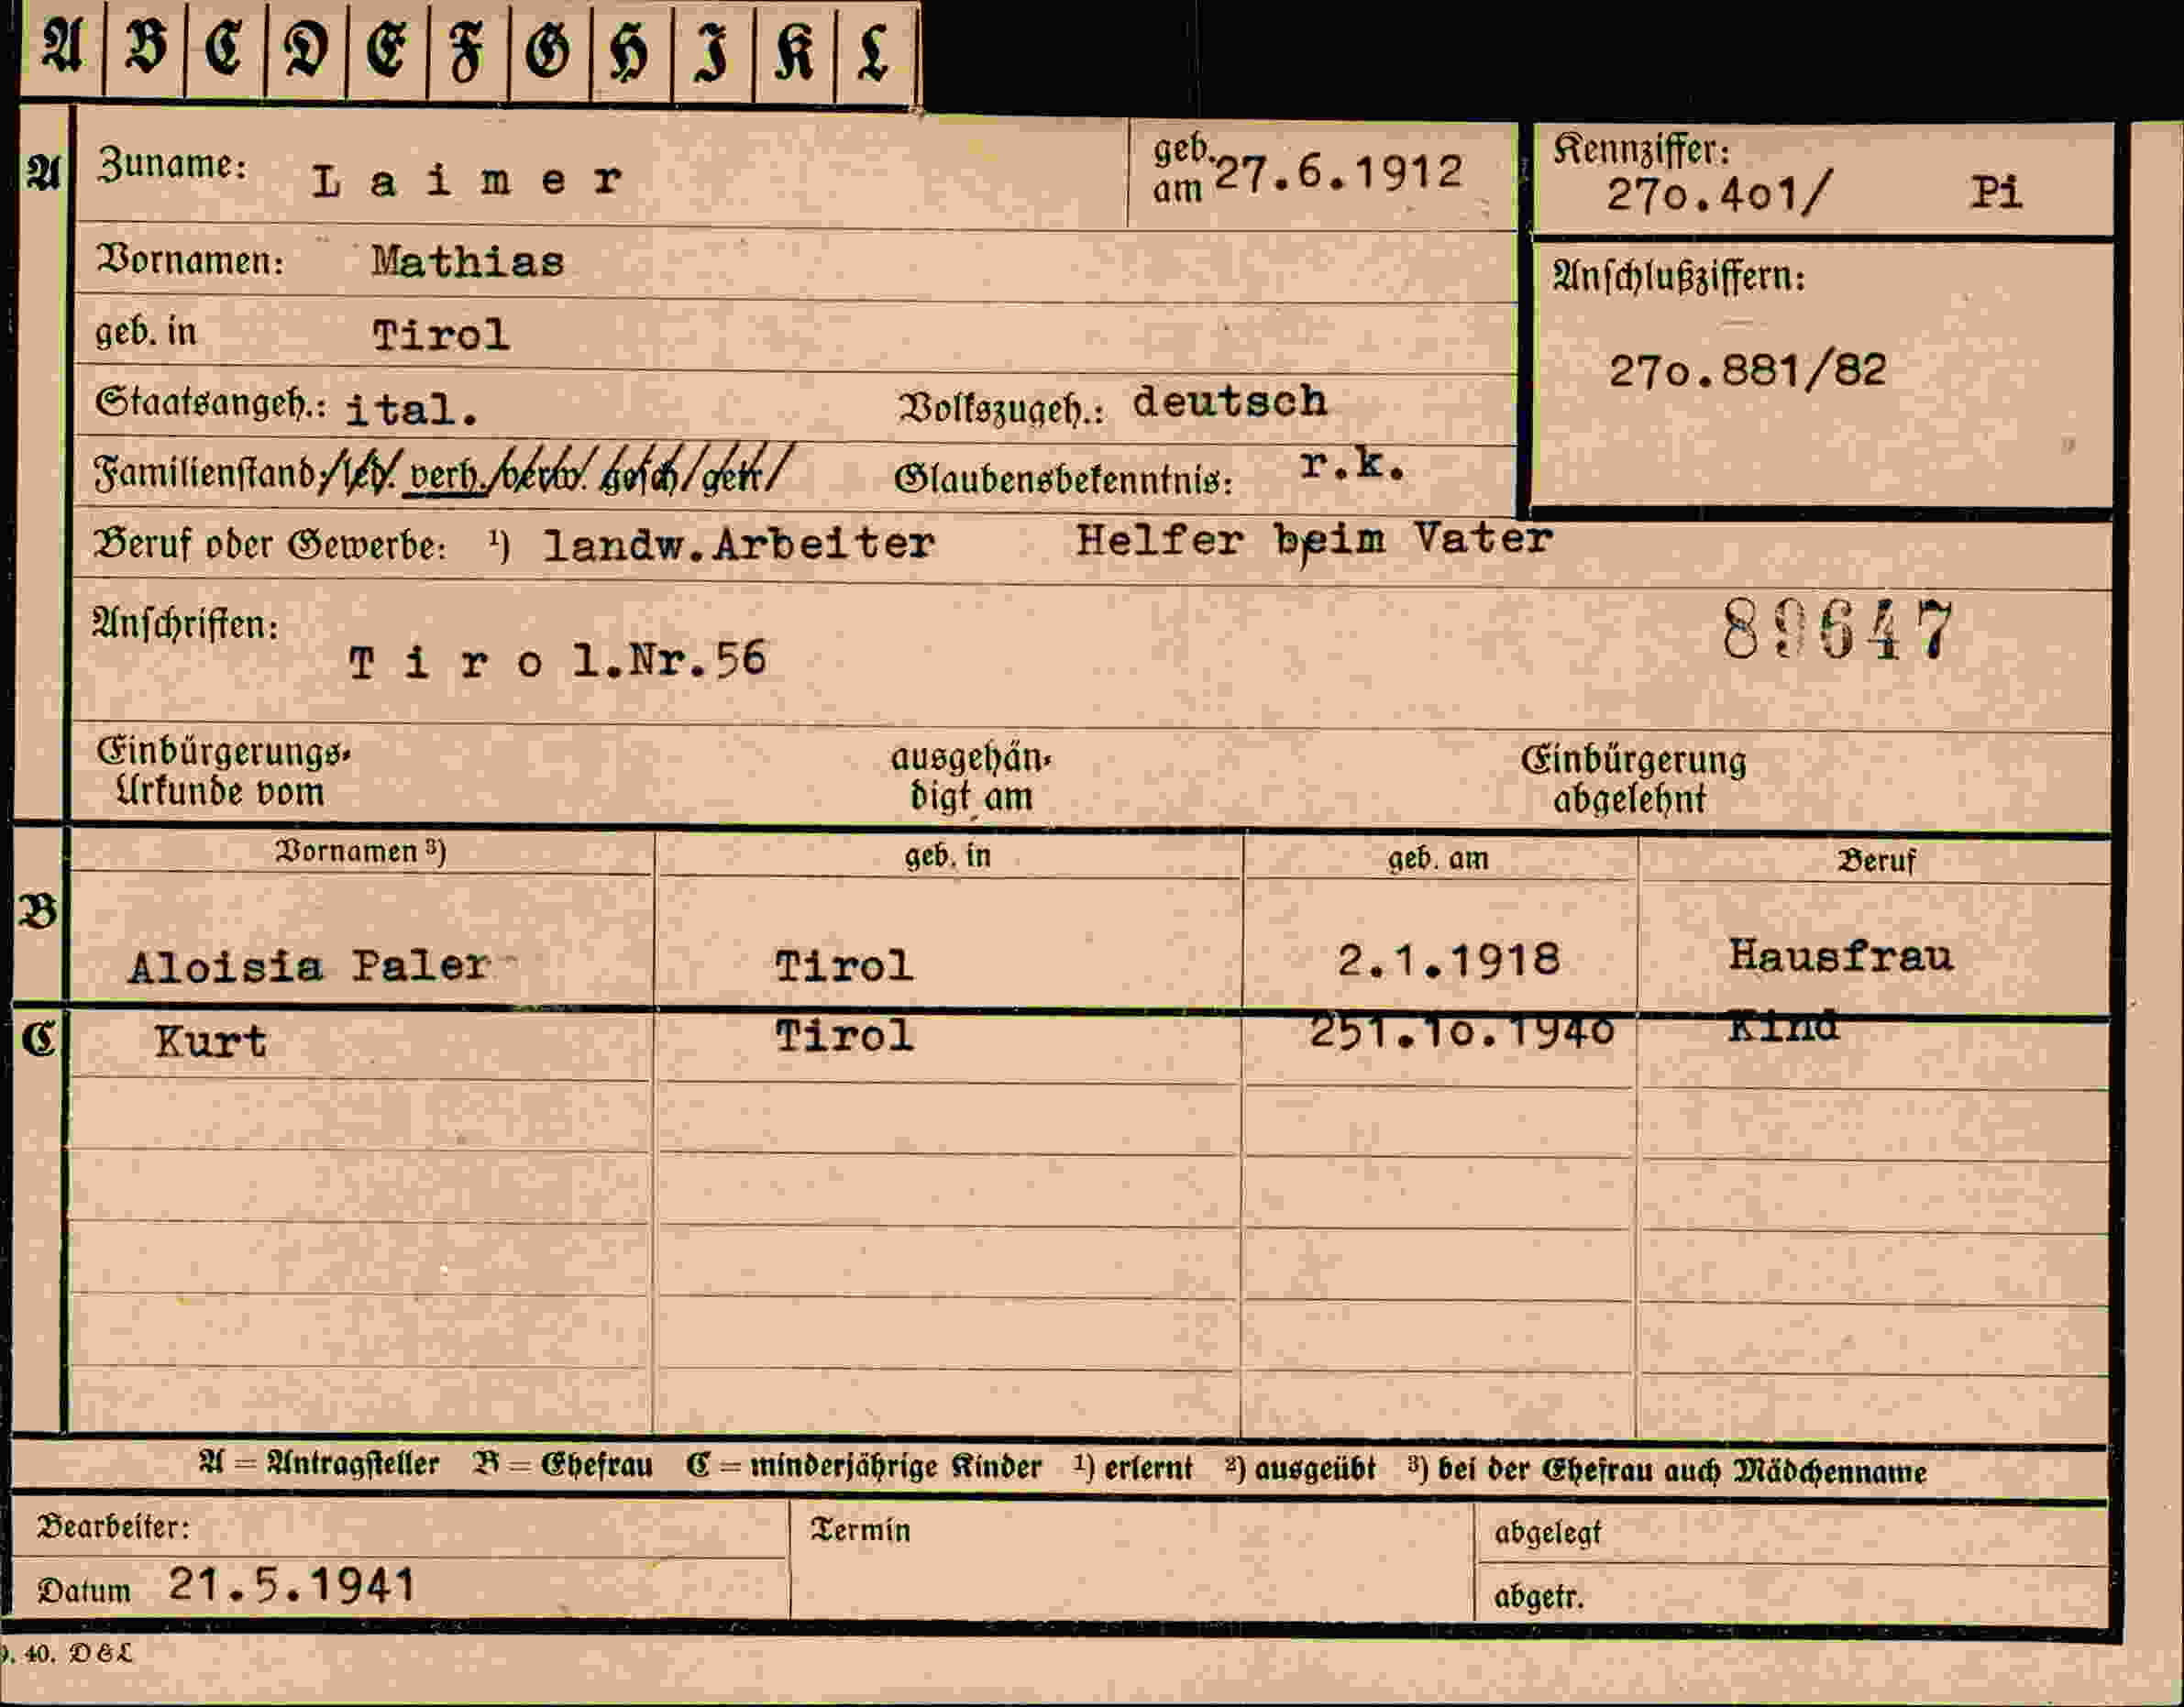 A B C D E F G H I K L
A Zuname: Laimer geb. am 27.6.1912 Kennziffer: 270.401/ Pi
Vornamen: Mathias Anschlußziffern:
geb. in Tirol 270.881/82
Staatsangeh.: ital. Volkszugeh.: deutsch
Familienstand: led. verh. verw. gesch. getr. Glaubensbekenntnis: r.k.
Beruf oder Gewerbe: ¹) landw.Arbeiter Helfer beim Vater
Anschriften: 89647
Tirol.Nr.56
Einbürgerungs- ausgehän- Einbürgerung
Urkunde vom digt am abgelehnt
Vornamen ³) geb. in geb. am Beruf
B Aloisia Paler Tirol 2.1.1918 Hausfrau
C Kurt Tirol 251.10.1940 Kind
A = Antragsteller B = Ehefrau C = minderjährige Kinder ¹) erlernt ²) ausgeübt ³) bei der Ehefrau auch Mädchenname
Bearbeiter: Termin abgelegt
Datum 21.5.1941 abgetr.
. 40. D&L